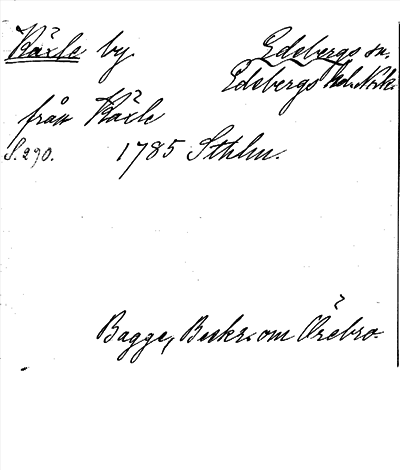 Käxle by Edsbergs sn.
Edsbergs hd. Närke.
från Käxle
S. 290. 1785 Sthlm.
Bagge, Beskr. om Örebro.